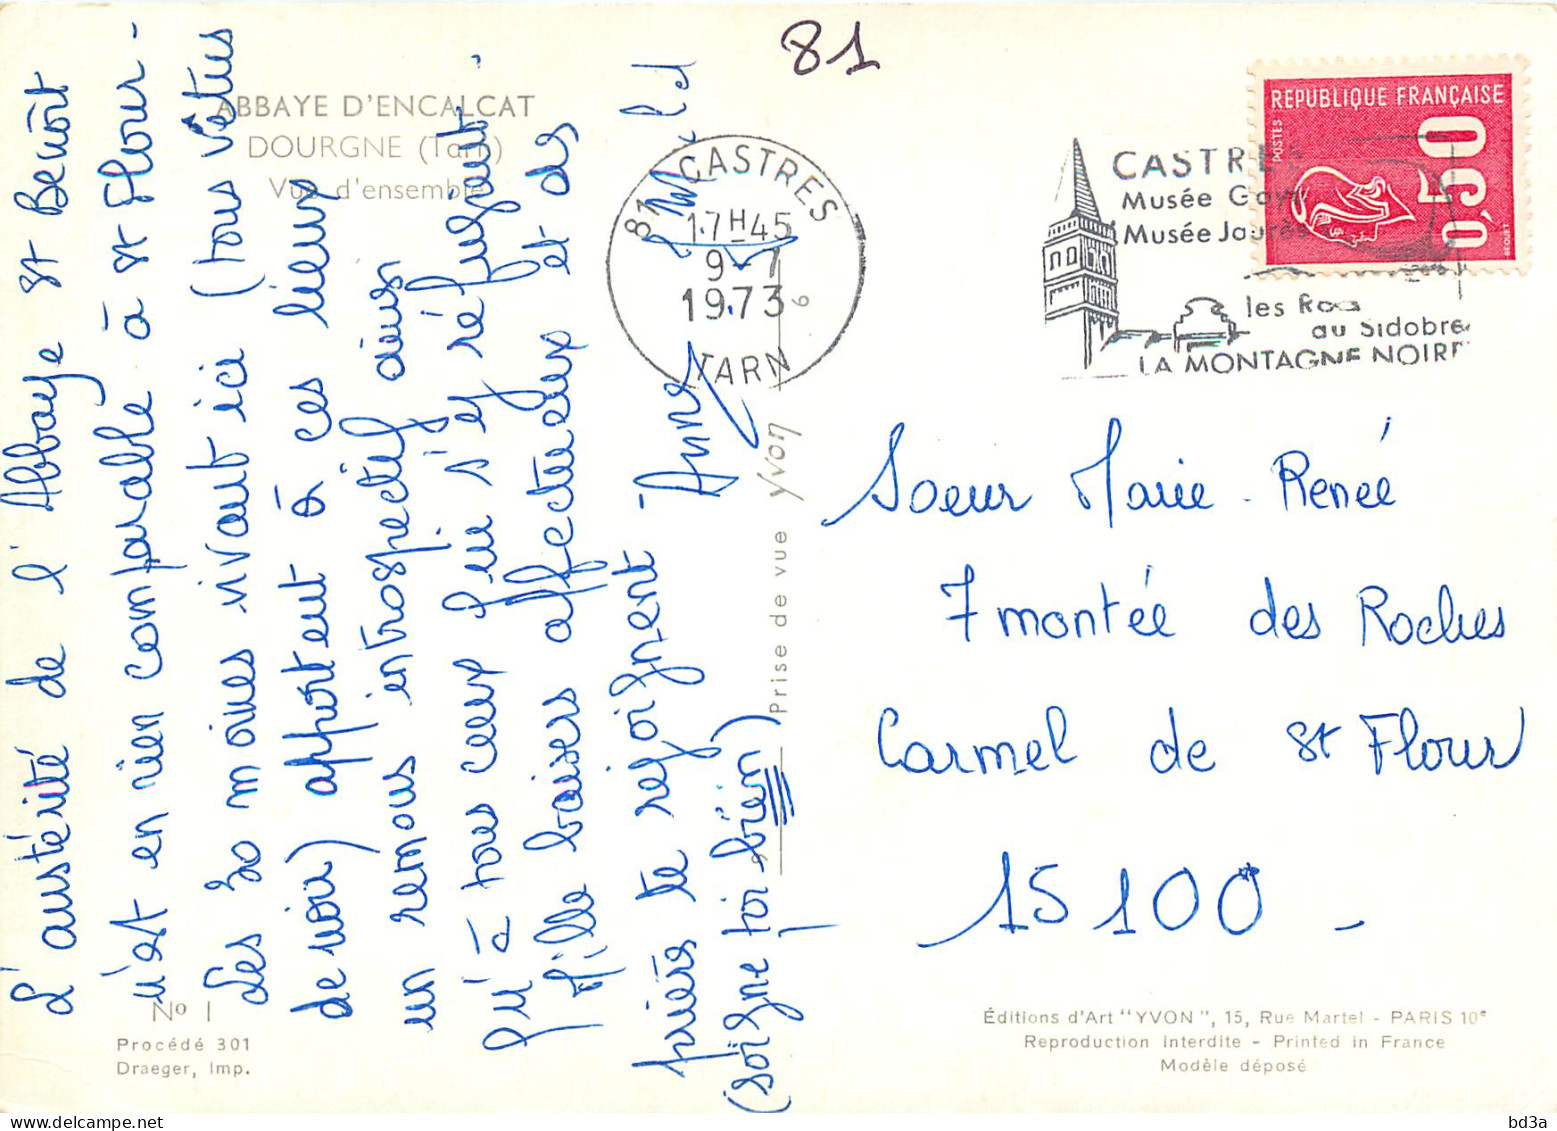 81
ABBAYE D'ENCALCAT
DOURGNE (Tarn)
Vue d'ensemble
L'austérité de l'Abbaye St Benoît
n'est en rien comparable à St Flour -
Les 30 moines vivant ici (tous vêtus
de noir) apportent à ces lieux
un remous introspectif ainsi
qu'à tous ceux qui s'y réfugient.
Mille baisers affectueux et das
prières te rejoignent -
(soigne toi bien)
Anny
CASTRES
81
17H45
9-7
1973
6
TARN
CASTRES
Musée Goya
Musée Jaurès
les Rocs
au Sidobre
LA MONTAGNE NOIRE
REPUBLIQUE FRANÇAISE
POSTES
0,50
BEQUET
Soeur Marie-Renée
7 montée des Roches
Carmel de St Flour
15100 -
Prise de vue yvon
Nº 1
Procédé 301
Draeger, Imp.
Éditions d'Art "YVON", 15, Rue Martel - PARIS 10e
Reproduction Interdite - Printed in France
Modèle déposé
bd3a